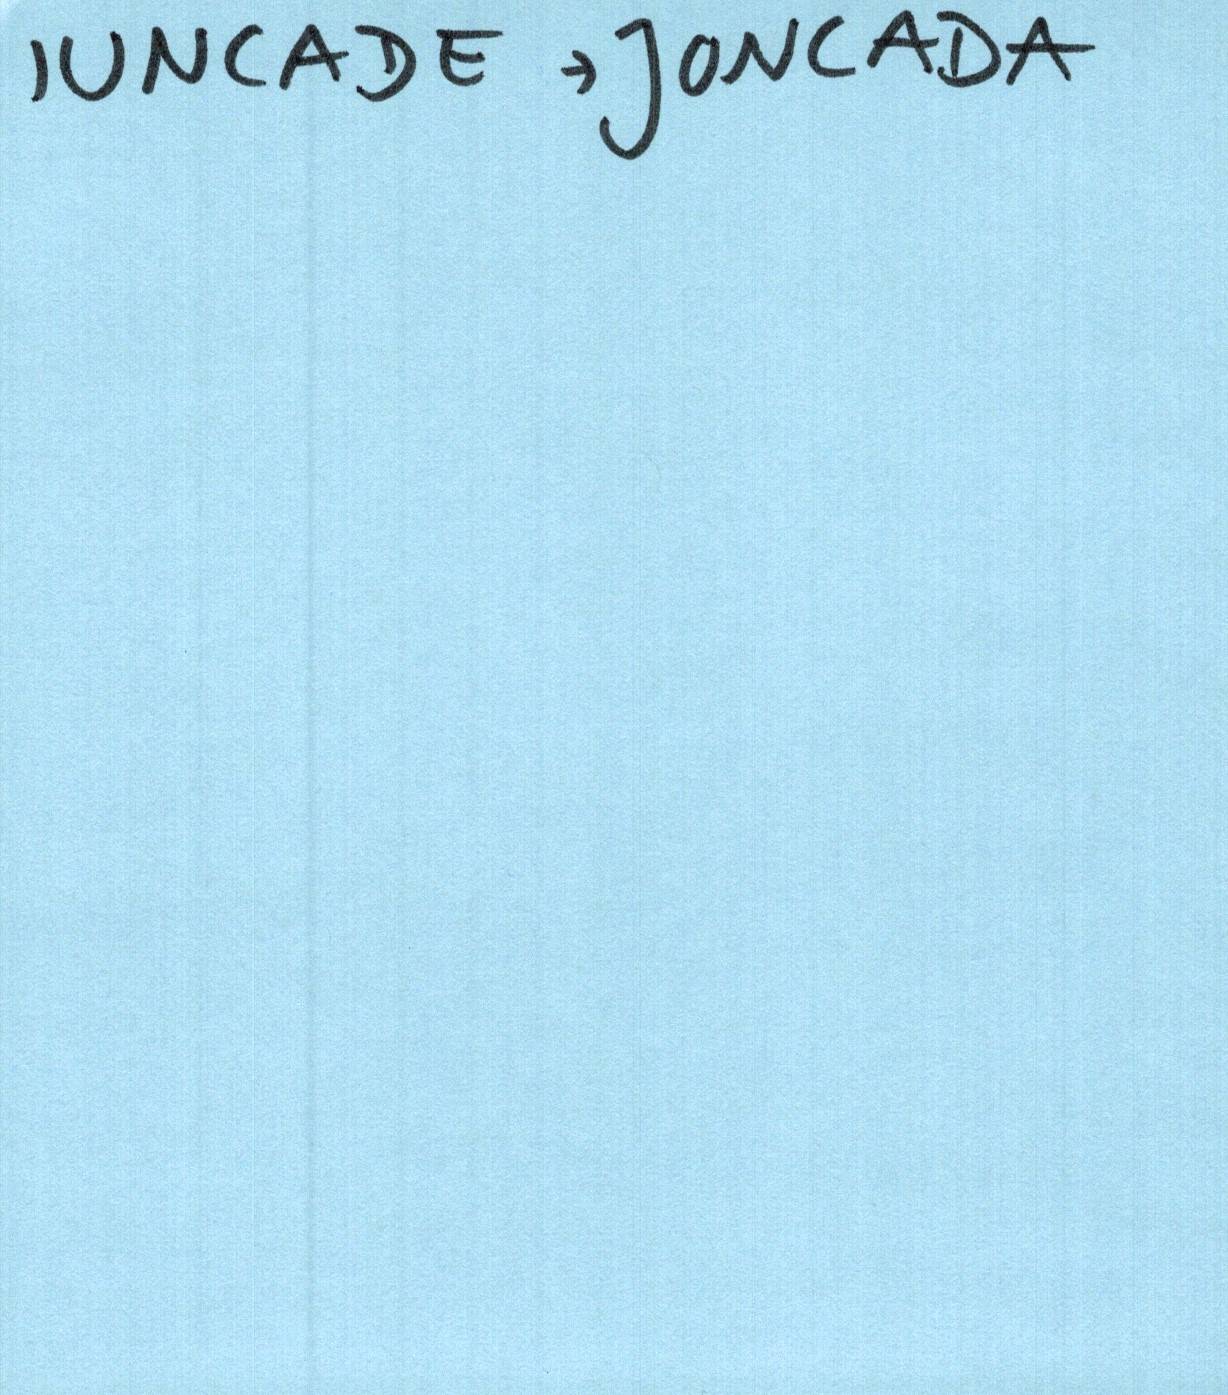 IUNCADE → JONCADA